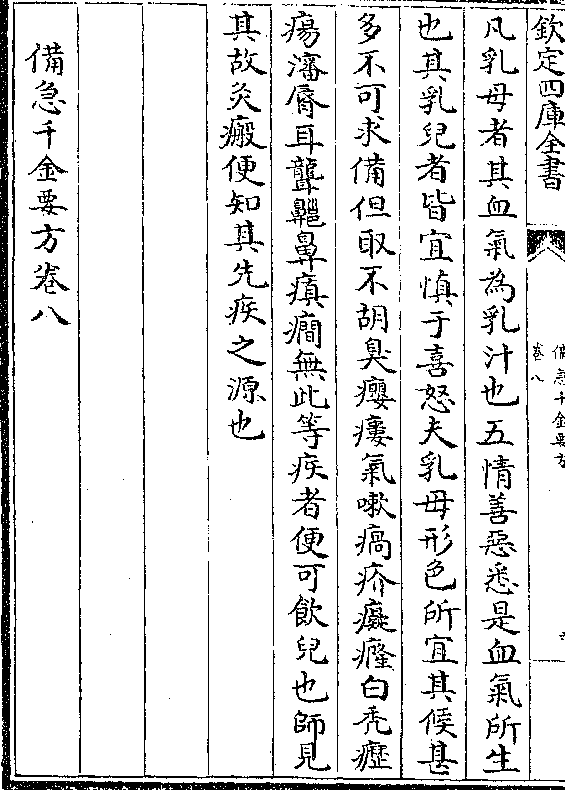 欽定四庫全書
備急千金要方
卷八
凡乳母者其血氣為乳汁也五情善惡悉是血氣所生
也其乳兒者皆宜慎于喜怒夫乳母形色所宜其候甚
多不可求備但取不胡臭癭瘻氣嗽瘑疥癡癃白禿癧
瘍瀋脣耳聾齆鼻癲癇無此等疾者便可飲兒也師見
其故灸瘢便知其先疾之源也
備急千金要方卷八